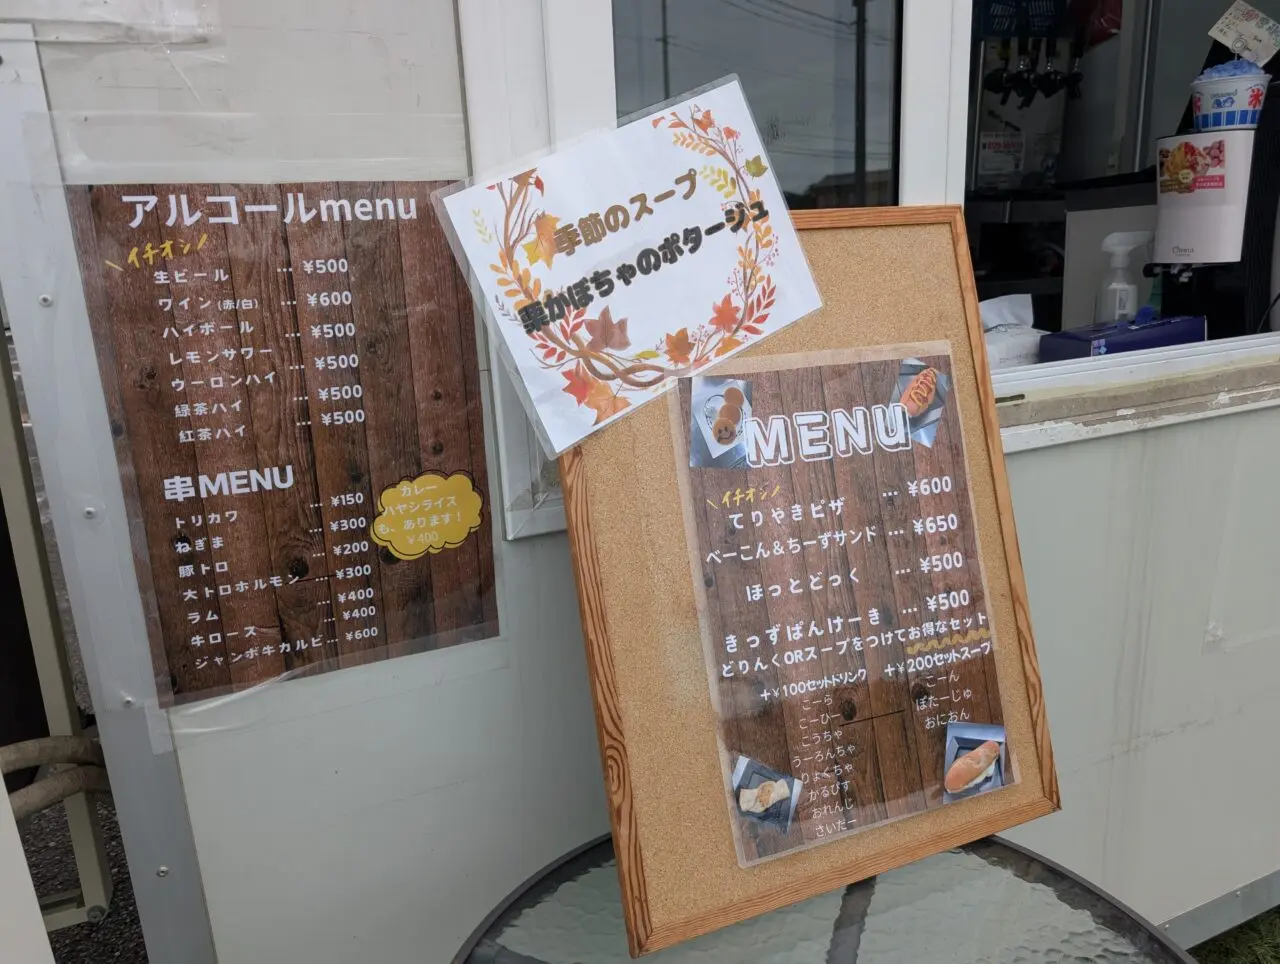 アルコールmenu
イチオシ
生ビール … ¥500
ワイン(赤/白) … ¥600
ハイボール … ¥500
レモンサワー … ¥500
ウーロンハイ … ¥500
緑茶ハイ … ¥500
紅茶ハイ
串MENU
トリカワ … ¥150
ねぎま … ¥300
豚トロ … ¥200
大トロホルモン … ¥300
ラム … ¥400
牛ロース … ¥400
ジャンボ牛カルビ… ¥600
カレー
ハヤシライス
も、あります！
¥400
季節のスープ
栗かぼちゃのポタージュ
MENU
イチオシ
てりやきピザ … ¥600
べーこん&ちーずサンド … ¥650
ほっとどっく … ¥500
きっずぱんけーき … ¥500
どりんくORスープをつけてお得なセット
+¥100セットドリンク
こーら
こーひー
こうちゃ
うーろんちゃ
りょくちゃ
かるぴす
おれんじ
さいだー
+¥200セットスープ
こーん
ぽたーじゅ
おにおん